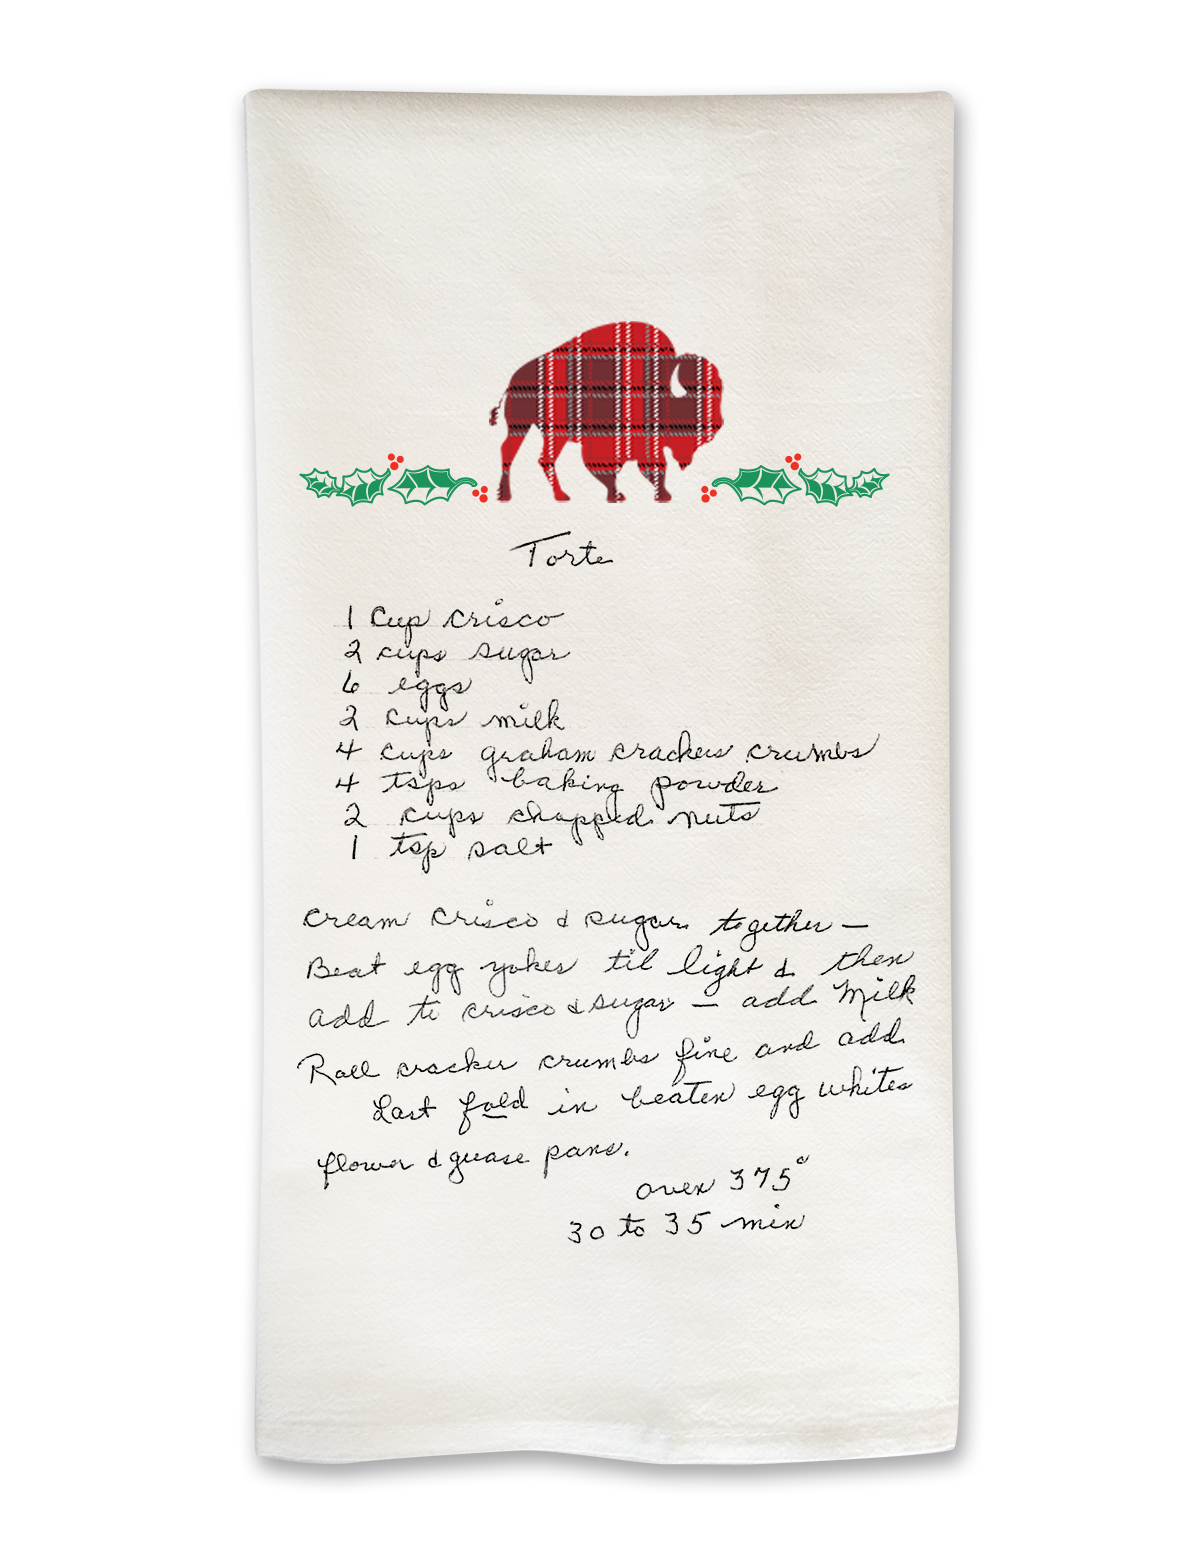 Torte
1 Cup Crisco
2 cups sugar
6 eggs
2 cups milk
4 cups graham crackers crumbs
4 tsps baking powder
2 cups chopped nuts
1 tsp salt
Cream Crisco & sugar together —
Beat egg yokes til light & then
add to crisco & sugar — add Milk
Roll cracker crumbs fine and add
Last fold in beaten egg whites
flower & grease pans.
oven 375°
30 to 35 min